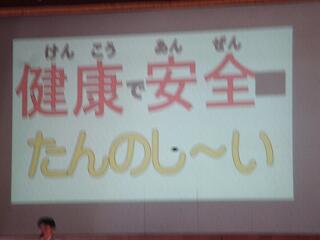 けん こう あん ぜん
健康で安全
たんのし〜い